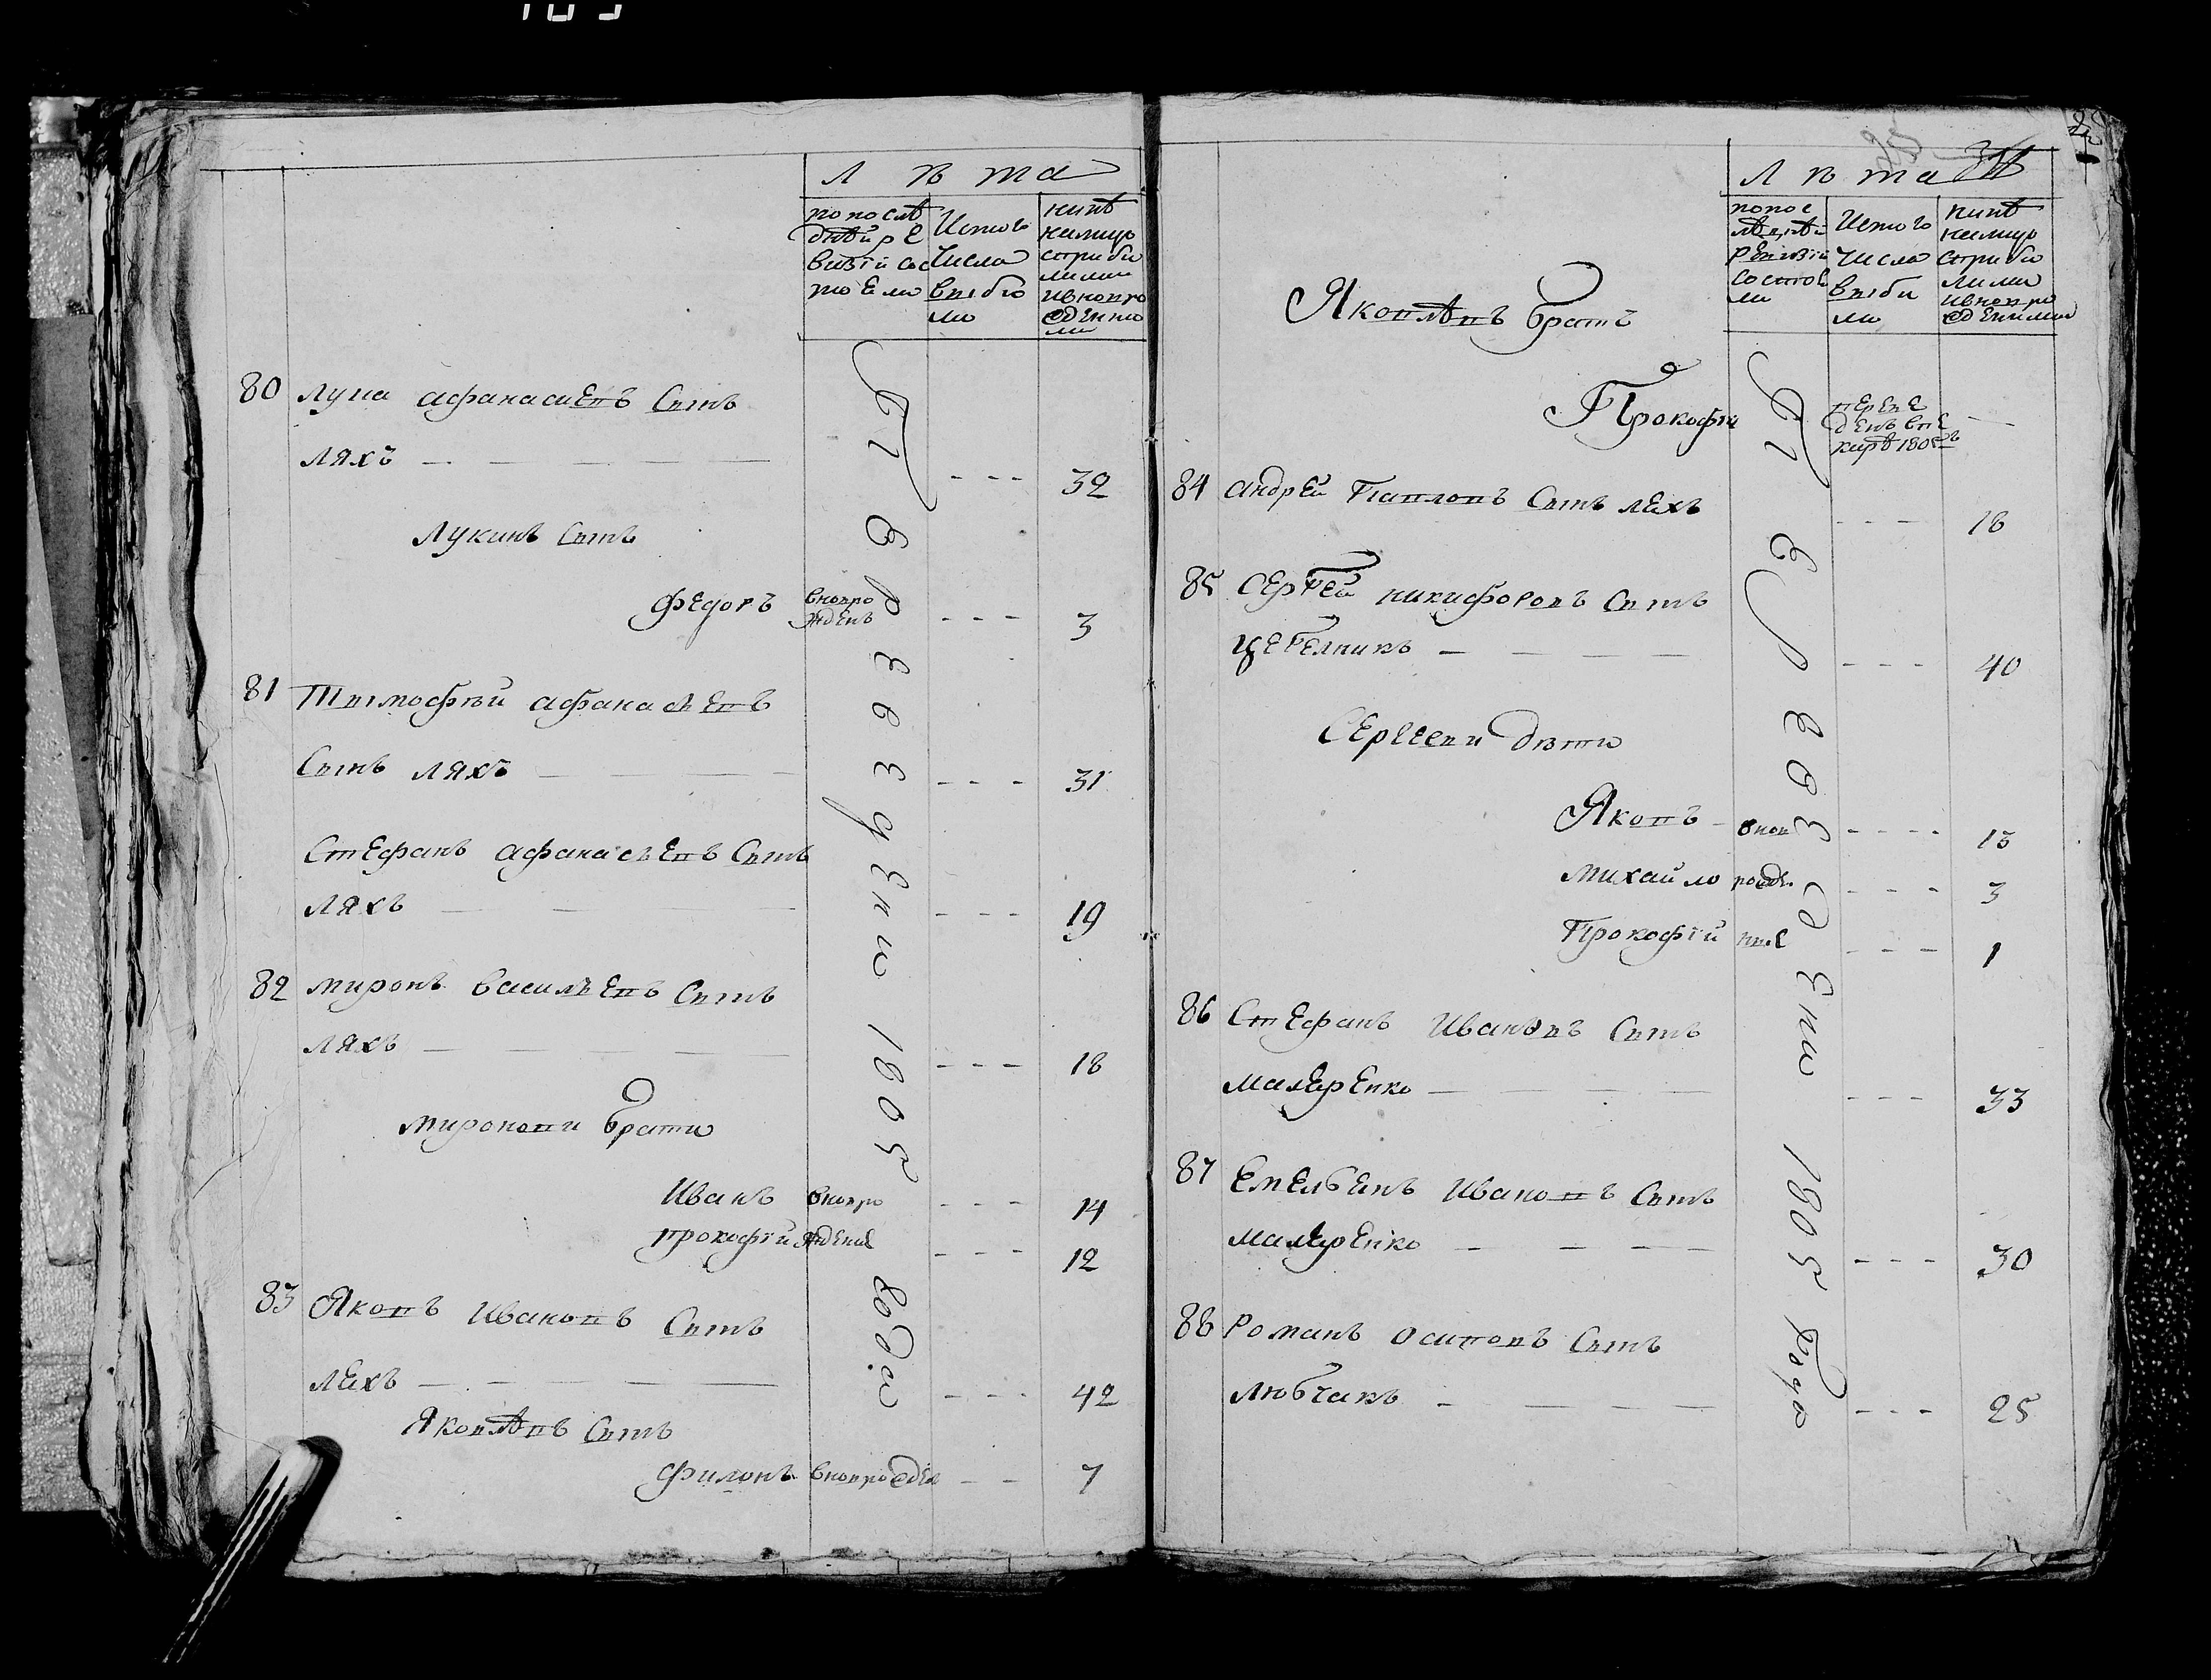 Лѣта
по послѣ
дней ре
визіи сос
тоело
Ис того
числа
выбы
ло
нинѣ
налицо
с прибы
лыми
и внопро
жденны
ми
80 Лука афанасиевъ Сынъ
ляхъ — — — — 32
Лукинъ Сынъ
федоръ внопро
жденъ - - - 3
81 Тымофѣй афанасьевъ
Сынъ ляхъ — — - - - 31
Стефанъ афанасьевъ Сынъ
ляхъ — — — - - - 19
82 миронъ васильевъ Сынъ
ляхъ — — — — - - - 18
миронови брати
Иванъ внопро - - - 14
прокофій жденіе - - - 12
83 Яковъ Ивановъ Сынъ
лехъ — — — — - - - 42
Яковлѣвъ Сынъ
филонъ внопрожден - - 7
1805 года
Лѣта
попос
лѣдней
ревизіи
состое
ло
Ис того
числа
выбы
ло
нинѣ
налицо
с прибы
лыми
и внопро
жденими
Яковлѣвъ братъ
Прокофій переве
денъ вне
кирѣ 1805 —
84 андрей Павловъ Сынъ лехъ - - - 18
85 Сергей никифоровъ Сынъ
цегелникъ — — — — - - - 40
Сергееви дѣти
Яковъ - внов - - - - 13
михайло рожде - - - 3
Прокофій ние - - - 1
86 Стефанъ Ивановъ Сынъ
маляренко — — — - - - 33
87 Емельенъ Ивановъ Сынъ
маляренко — — — — - - - 30
88 Романъ осиповъ Сынъ
любчакъ — — — — - - - 25
1805 году